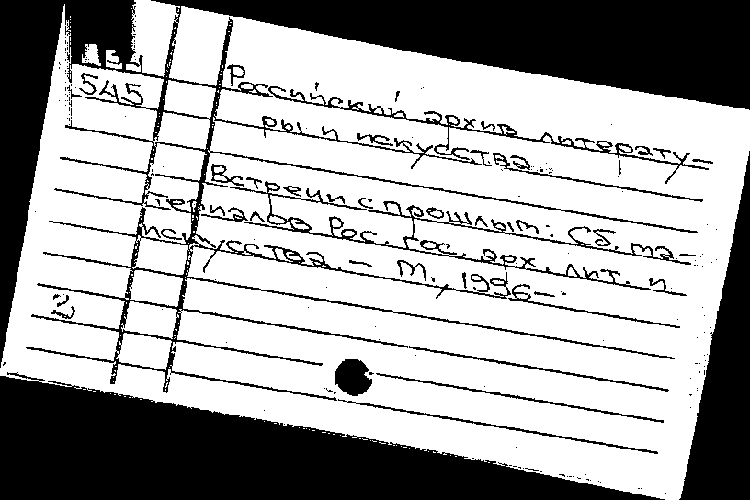 545
Российский архив литерату-
ры и искусства.
Встречи с прошлым: Сб. ма-
териалов Рос. гос. арх. лит. и
искусства. – М., 1996–.
2